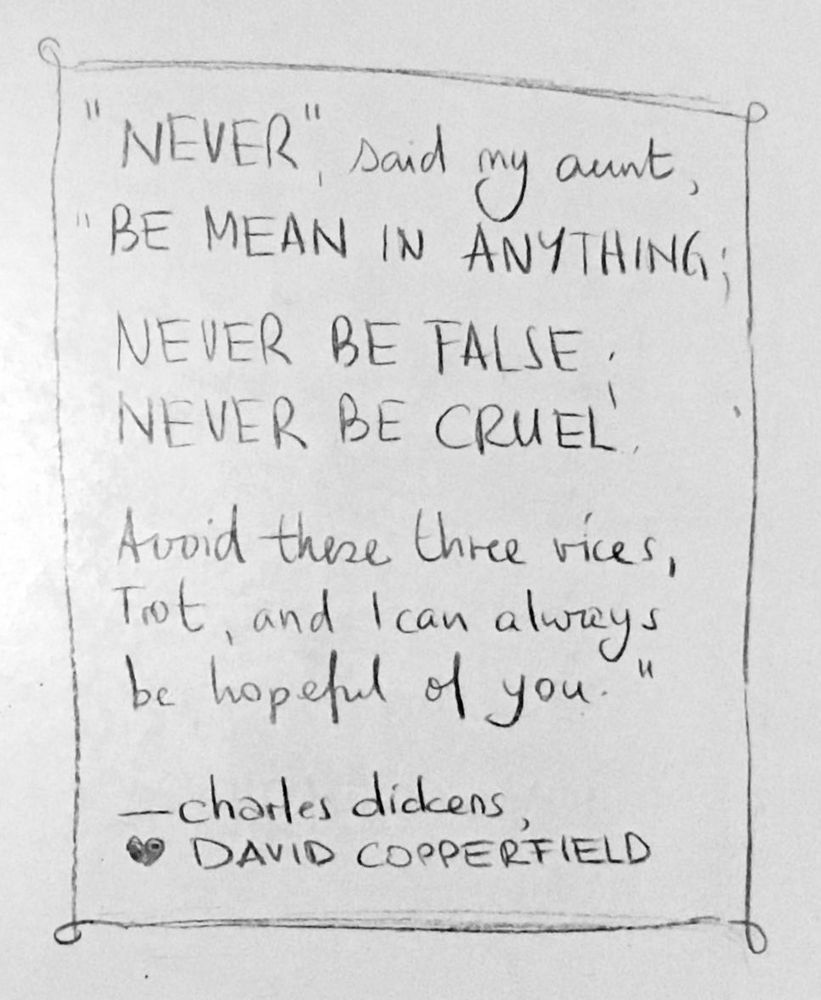 "NEVER", said my aunt,
"BE MEAN IN ANYTHING;
NEVER BE FALSE;
NEVER BE CRUEL.
Avoid these three vices,
Trot, and I can always
be hopeful of you."
—charles dickens,
♥ DAVID COPPERFIELD